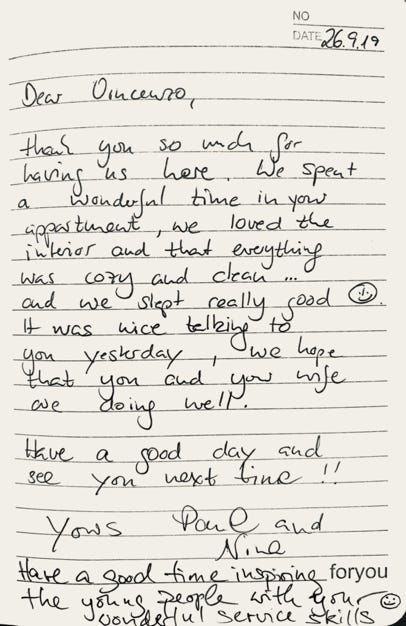 NO
DATE 26.9.19
Dear Vincenzo,
thank you so much for
having us here. We spent
a wonderful time in your
appartment, we loved the
interior and that everything
was cozy and clean ...
and we slept really good ☺.
It was nice talking to
you yesterday, we hope
that you and your wife
are doing well.
Have a good day and
see you next time !!
Yours Paul and
Nina
Have a good time inspiring foryou
the young people with your ☺
wonderful service skills